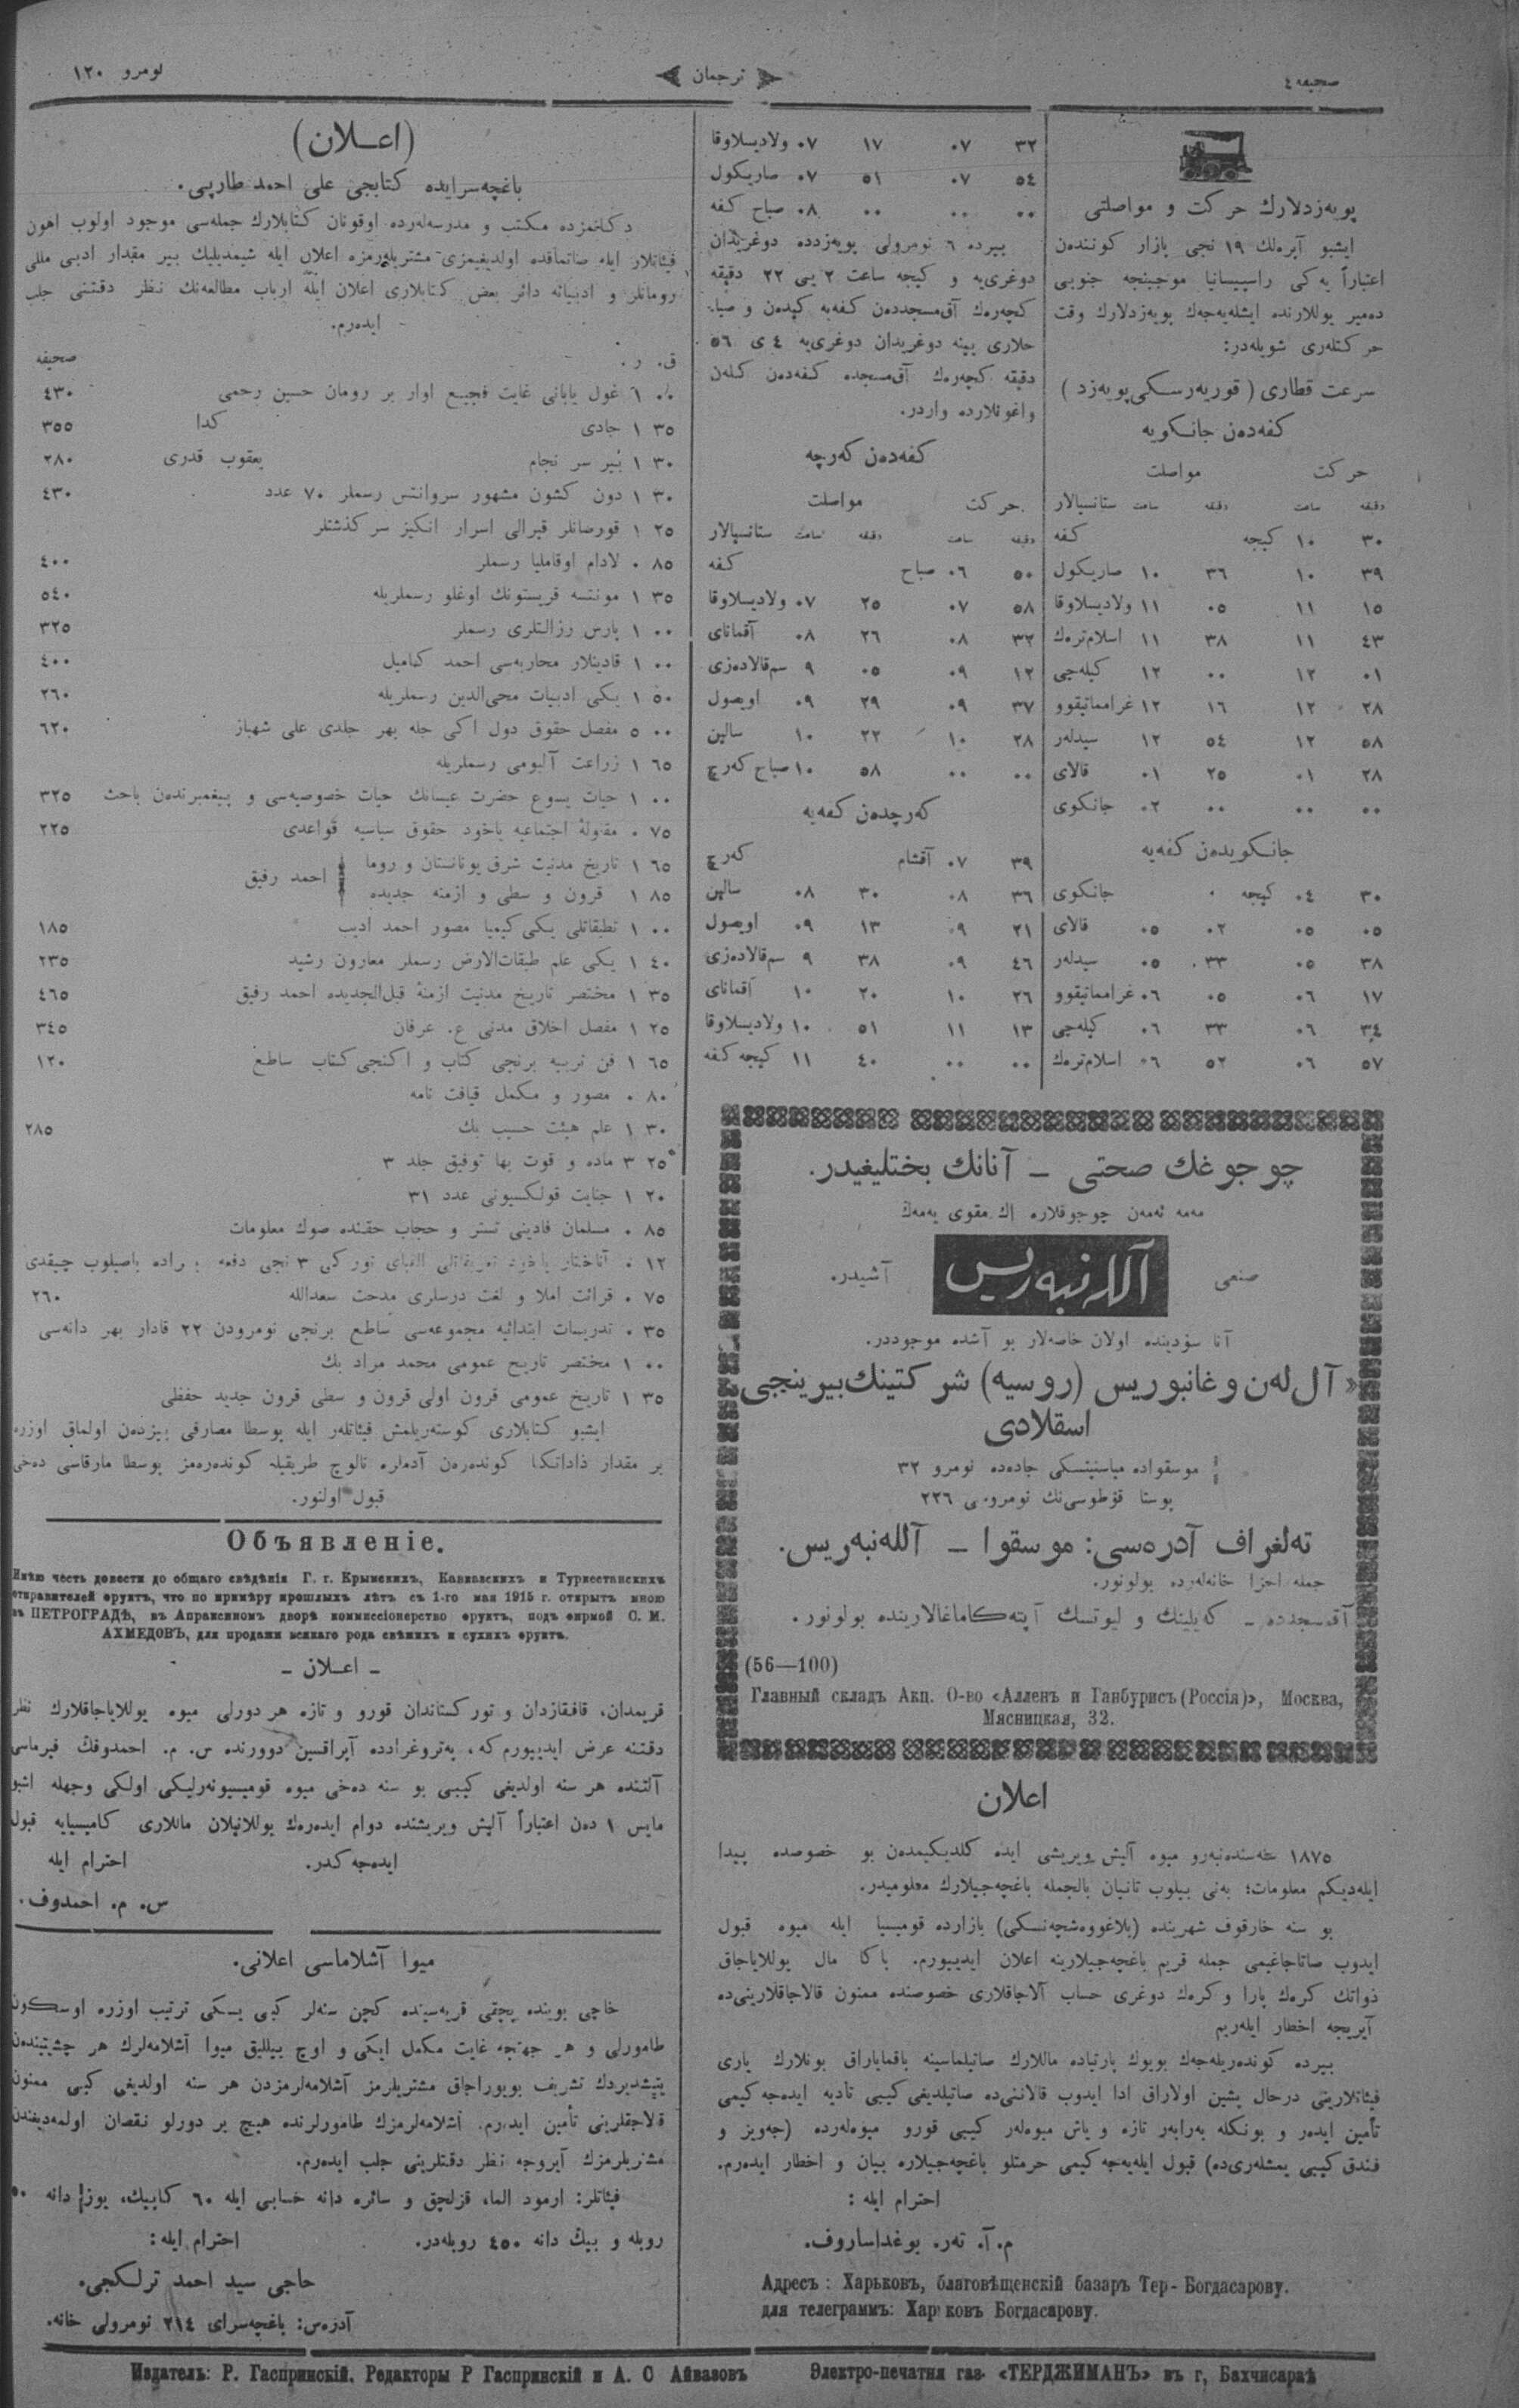 صحیفه ٤
ترجمان
نومرو ١٢٠
پویەزدلارك حركت و مواصلتی
ایشبو آپرەلك ١٩ نجی بازار كونندن
اعتباراً یەكی راسپیسانیا موجبنجه جنوبی
دەمیر یوللارنده ایشلەیەجەك پویەزدلارك وقت
حركتلەری شویلەدر:
سرعت قطاری ( قوریەرسكی پویەزد )
كفەدەن جانكویه
حركت مواصلت
دقیقه ساعت دقیقه ساعت ستانسیالار
٣٠ ١٠ كیجه كفه
٣٩ ١٠ ٣٦ ١٠ صاریكول
١٥ ١١ ٠٥ ١١ ولادیسلاوقا
٤٣ ١١ ٣٨ ١١ اسلام‌ترەك
٠١ ١٢ ٠٠ ١٢ كیلەجی
٢٨ ١٢ ١٦ ١٢ غراماتیقوو
٥٨ ١٢ ٥٤ ١٢ سیدلەر
٢٨ ٠١ ٢٥ ٠١ قالای
٠٠ ٠٠ ٠٠ ٠٢ جانكوی
جانكویدەن كفەیه
٣٠ ٠٤ كیجه جانكوی
٠٥ ٠٥ ٠٢ ٠٥ قالای
٣٨ ٠٥ ٣٣ ٠٥ سیدلەر
١٧ ٠٦ ٠٥ ٠٦ غراماتیقوو
٣٤ ٠٦ ٣٣ ٠٦ كیلەجی
٥٧ ٠٦ ٥٢ ٠٦ اسلام‌ترەك
٣٢ ٠٧ ١٧ ٠٧ ولادیسلاوقا
٥٤ ٠٧ ٥١ ٠٧ صاریكول
٠٠ ٠٠ ٠٠ ٠٨ صباح كفه
بیرده ٦ نومرولی پویەزدده دوغریدان
دوغری‌یه و كیجه ساعت ٢ یی ٢٢ دقیقه
كچەرەك آق‌مسجددەن كفەیه كیدەن و صبا-
حلاری یینه دوغریدان دوغری‌یه ٤ ی ٥٦
دقیقه كچەرەك آق‌مسجده كفەدەن كلەن
واغونلارده واردر.
كفەدەن كەرچه
حركت مواصلت
دقیقه ساعت دقیقه ساعت ستانسیالار
٥٠ ٠٦ صباح كفه
٥٨ ٠٧ ٢٥ ٠٧ ولادیسلاوقا
٣٢ ٠٨ ٢٦ ٠٨ آقمانای
١٢ ٠٩ ٠٥ ٩ سم‌قالادەزی
٣٧ ٠٩ ٢٩ ٠٩ اویصول
٢٨ ١٠ ٢٢ ١٠ سالین
٠٠ ٠٠ ٥٨ ١٠ صباح كەرچ
كەرچدەن كفەیه
٣٩ ٠٧ آقشام كەرچ
٣٦ ٠٨ ٣٠ ٠٨ سالین
٢١ ٠٩ ١٣ ٠٩ اویصول
٤٦ ٠٩ ٣٨ ٩ سم‌قالادەزی
٢٦ ١٠ ٢٠ ١٠ آقمانای
١٣ ١١ ٥١ ١٠ ولادیسلاوقا
٠٠ ٠٠ ٤٠ ١١ كیجه كفه
چوجوغك صحتی ــ آنانك بختلیغیدر.
مەمه ئەمەن چوجوقلاره اڭ مقوی یەمەك
صنعی آللەنبەریس آشیدر.
آنا سؤدینده اولان خاصەلار بو آشده موجوددر.
«آل‌لەن و غانبوریس (روسیه) شركتینك بیرینجی
اسقلادی
موسقواده میاسنیتسكی جادەده نومرو ٣٢
پوستا قوطوسی‌نك نومروسی ٢٢٦
تەلغراف آدرەسی: موسقوا ــ آللەنبەریس.
جمله اجزا خانەلەرده بولونور.
آق‌مسجدده ــ كەیلینك و لیوتسك آپتەكاماغالارینده بولونور.
(56—100)
Главный складъ Акц. О-во «Алленъ и Ганбурисъ (Россія)», Москва,
Мясницкая, 32.
اعلان
١٨٧٥ سنەسندەنبەرو میوه آلیش ویریشی ایده كلدیكیمدەن بو خصوصده پیدا
ایلەدیكم معلومات؛ بەنی بیلوب تانیان بالجمله باغچەجیلارك معلومیدر.
بو سنه خارقوف شهرینده (بلاغووەشچەنسكی) بازارده قومیسیا ایله میوه قبول
ایدوب صاتاجاغیمی جمله قریم باغچەجیلارینه اعلان ایدییورم. باكا مال یوللایاجاق
ذواتك كرەك پارا و كرەك دوغری حساب آلاجاقلاری خصوصنده ممنون قالاجاقلارینی‌ده
آیریجه اخطار ایلەریم
بیرده كوندەریلەجەك بویوك پارتیاده ماللارك صاتیلماسینه باقمایاراق بونلارك یاری
فیئاتلارینی درحال پشین اولاراق ادا ایدوب قالاننی‌ده صاتیلدیغی كیبی تأدیه ایدەجەكیمی
تأمین ایدەر و بونكله بەرابەر تازه و یاش میوەلەر كیبی قورو میوەلەرده (جەویز و
فندق كیبی یمشلەری‌ده) قبول ایلەیەجەكیمی حرمتلو باغچەجیلاره بیان و اخطار ایدەرم.
احترام ایله :
م. آ. تەر. بوغداساروف.
Адресъ : Харьковъ, благовѣщенскій базаръ Тер-Богдасарову.
для телеграммъ: Харьковъ Богдасарову.
(اعــلان)
باغچەسرایده كتابجی علی احمد طارپی.
دكانمزده مكتب و مدرسەلەرده اوقونان كتابلارك جملەسی موجود اولوب اهون
فیئاتلار ایله صاتماقده اولدیغیمزی مشتریلەرمزه اعلان ایله شیمدیلیك بیر مقدار ادبی مللی
رومانلر و ادبیاته دائر بعض كتابلاری اعلان ایله ارباب مطالعەنك نظر دقتنی جلب
ایدەرم.
ق. ر. صحیفه
٠٠ ١ غول یابانی غایت فجیع اوار بر رومان حسین رحمی ٤٣٠
٣٥ ١ جادی كدا ٣٥٥
٣٠ ١ بیر سر نجام یعقوب قدری ٢٨٠
٣٠ ١ دون كشون مشهور سروانتس رسملر ٧٠ عدد ٤٣٠
٢٥ ١ قورصانلر قیرالی اسرار انكیز سركذشتلر
٨٥ ٠ لادام اوقاملیا رسملر ٤٠٠
٣٥ ١ مونتسه قریستونك اوغلو رسملریله ٥٤٠
٠٠ ١ پارس رزالتلری رسملر ٣٢٥
٠٠ ١ قادینلار محاربەسی احمد كامیل ٤٠٠
٥٠ ١ یكی ادبیات محی‌الدین رسملریله ٢٦٠
٠٠ ٥ مفصل حقوق دول اكی جله بهر جلدی علی شهباز ٦٢٠
٦٥ ١ زراعت آلبومی رسملریله
٠٠ ١ حیات یسوع حضرت عیسانك حیات خصوصیەسی و پیغمبرندەن باحث ٣٢٥
٧٥ ٠ مقاولۀ اجتماعیه یاخود حقوق سیاسیه قواعدی ٢٢٥
٦٥ ١ تاریخ مدنیت شرق یونانستان و روما
٨٥ ١ قرون و سطی و ازمنه جدیده احمد رفیق
٠٠ ١ تطبقاتلی یكی كیمیا مصور احمد ادیب ١٨٥
٤٠ ١ یكی علم طبقات‌الارض رسملر معارون رشید ٢٣٥
٣٥ ١ مختصر تاریخ مدنیت ازمنۀ قبل‌الجدیده احمد رفیق ٤٦٥
٢٥ ١ مفصل اخلاق مدنی ع. عرفان ٣٤٥
٦٥ ١ فن تربیه برنجی كتاب و اكنجی كتاب ساطع ١٢٠
٨٠ ٠ مصور و مكمل قیافت نامه
٣٠ ١ علم هیئت حسیب بك ٢٨٥
٢٥ ٣ ماده و قوت بها توفیق جلد ٣
٢٠ ١ جنایت قولكسیونی عدد ٣١
٨٥ ٠ مسلمان قادینی تستر و حجاب حقنده صوك معلومات
١٢ ٠ آناختار یاخود الفبای توركی ٣ نجی دفعه باصیلوب چیقدی
٧٥ ٠ قرائت املا و لغت درسلری مدحت سعدالله ٢٦٠
٣٥ ٠ تدریسات ابتدائیه مجموعەسی ساطع برنجی نومرودن ٢٢ قادار بهر دانەسی
٠٠ ١ مختصر تاریخ عمومی محمد مراد بك
٣٥ ١ تاریخ عمومی قرون اولی قرون و سطی قرون جدید حفظی
ایشبو كتابلاری كوستەریلمش فیئاتلەر ایله پوسطا مصارفی بیزدەن اولماق اوزره
بر مقدار ذاداتكا كوندەرەن آدملره نالوج طریقیله كوندەرەمز پوسطا مارقاسی دەخی
قبول اولنور.
Объявленіе.
Имѣю честь довести до общаго свѣдѣнія Г. г. Крымскихъ, Кавказскихъ и Туркестанскихъ
отправителей фруктъ, что по примѣру прошлыхъ лѣтъ съ 1-го мая 1915 г. открытъ мною
въ ПЕТРОГРАДѢ, въ Апраксиномъ дворѣ коммиссіонерство фруктъ, подъ фирмой С. М.
АХМЕДОВЪ, для продажи всякаго рода свѣжихъ и сухихъ фруктъ.
ــ اعــلان ــ
قریمدان، قافقازدان و توركستاندان قورو و تازه هر دورلی میوه یوللایاجاقلارك نظر
دقتنه عرض ایدییورم كه، پەتروغرادده آپراقسین دوورنده س. م. احمدوفك فیرماسی
آلتنده هر سنه اولدیغی كیبی بو سنه دەخی میوه قومیسیونەرلیكی اولكی وجهله اشبو
مایس ١ دەن اعتباراً آلیش ویریشنده دوام ایدەرەك یوللانیلان ماللاری كامیسیایه قبول
ایدەجەكدر. احترام ایله
س. م. احمدوف.
میوا آشلاماسی اعلانی.
خاچی بوینده پچقی قریەسینده كچن سنەلر كبی یسكی ترتیب اوزره اوسكون
طامورلی و هر جهتجه غایت مكمل ایكی و اوچ ییللیق میوا آشلامەلرك هر چشیتیندەن
یتیشدیردك تشریف بویوراجاق مشتریلرمز آشلامەلرمزدن هر سنه اولدیغی كبی ممنون
قالاجقلرینی تأمین ایدەرم. آشلامەلرمزك طامورلرنده هیچ بر دورلو نقصان اولمەدیغندن
مشتریلرمزك آیروجه نظر دقتلرینی جلب ایدەرم.
فیئاتلر: ارمود الما، قزلجق و سائره دانه حسابی ایله ٦٠ كاپیك، یوز دانه ٥٠
روبله و بیڭ دانه ٤٥٠ روبلەدر. احترام ایله:
حاجی سید احمد ترلكجی.
آدرەس: باغچەسرای ٢١٤ نومرولی خانه.
Издатель: Р. Гаспринскій. Редакторы Р Гаспринскій и А. С Айвазовъ
Электро-печатня газ. «ТЕРДЖИМАНЪ» въ г, Бахчисараѣ